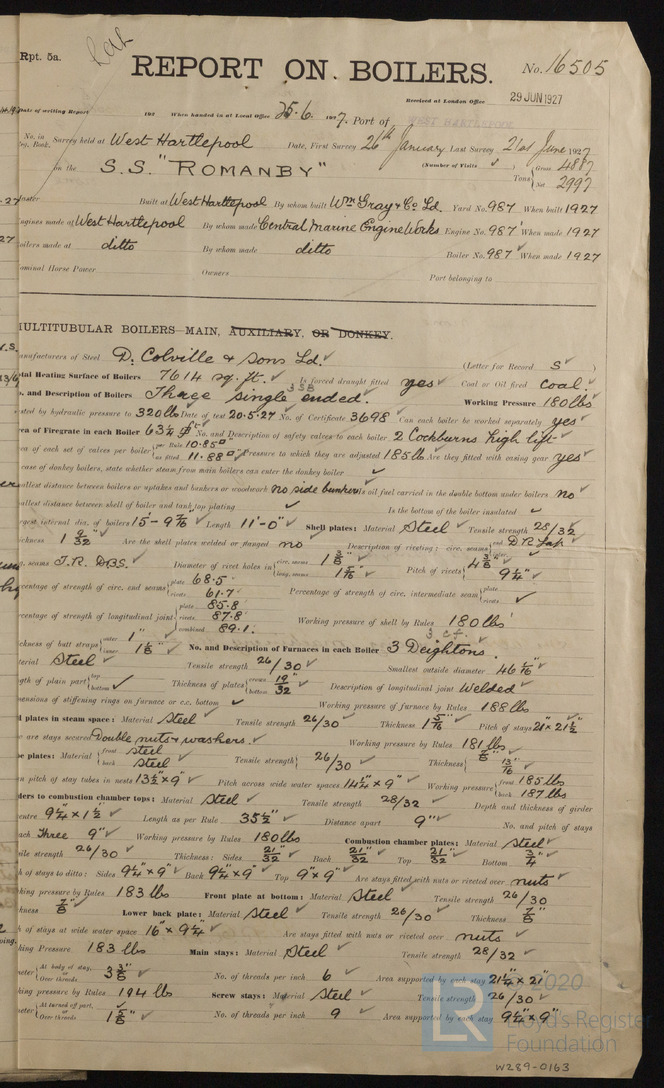 Rpt. 5a.
REPORT ON BOILERS.
No. 16505
Received at London Office 29 JUN 1927
Date of writing Report 192 When handed in at Local Office 25.6. 1927. Port of WEST HARTLEPOOL
No. in Survey held at West Hartlepool Date, First Survey 26th January Last Survey 21st June 1927
on the S.S. "ROMANBY" (Number of Visits ) Tons Gross 4887 Net 2997
Master Built at West Hartlepool By whom built Wm Gray & Co Ld. Yard No. 987 When built 1927
Engines made at West Hartlepool By whom made Central Marine Engine Works Engine No. 987 When made 1927
Boilers made at ditto By whom made ditto Boiler No. 987 When made 1927
Nominal Horse Power Owners Port belonging to
MULTITUBULAR BOILERS—MAIN, AUXILIARY, OR DONKEY.
Manufacturers of Steel D. Colville & Sons Ld. (Letter for Record S )
Total Heating Surface of Boilers 7614 sq. ft. Is forced draught fitted yes Coal or Oil fired coal.
No. and Description of Boilers Three single ended. 3SB Working Pressure 180 lbs
Tested by hydraulic pressure to 320 lbs Date of test 20.5.27 No. of Certificate 3698 Can each boiler be worked separately yes
Area of Firegrate in each Boiler 63¼ ft No. and Description of safety valves to each boiler 2 Cockburns high lift
Area of each set of valves per boiler per Rule 10.85 as fitted 11.88 Pressure to which they are adjusted 185 lb Are they fitted with easing gear yes
In case of donkey boilers, state whether steam from main boilers can enter the donkey boiler ✓
Smallest distance between boilers or uptakes and bunkers or woodwork no side bunkers Is oil fuel carried in the double bottom under boilers no
Smallest distance between shell of boiler and tank top plating ✓ Is the bottom of the boiler insulated ✓
Largest internal dia. of boilers 15'-9 7/16" Length 11'-0" Shell plates: Material Steel Tensile strength 28/32
Thickness 1 9/32" Are the shell plates welded or flanged no Description of riveting: circ. seams end DR Lap.
long. seams T.R. DBS. Diameter of rivet holes in circ. seams 1 3/8" long. seams 1 5/16" Pitch of rivets 4 3/8" 9¼"
Percentage of strength of circ. end seams plate 68.5 rivets 61.7 Percentage of strength of circ. intermediate seam plate rivets ✓
Percentage of strength of longitudinal joint plate 85.8 rivets 87.8 combined 89.1 Working pressure of shell by Rules 180 lbs
Thickness of butt straps outer 1" inner 1 1/8" No. and Description of Furnaces in each Boiler 3 Deightons. 3 cf.
Material Steel Tensile strength 26/30 Smallest outside diameter 46 5/16"
Length of plain part top bottom ✓ Thickness of plates crown bottom 19/32 Description of longitudinal joint Welded
Dimensions of stiffening rings on furnace or c.c. bottom ✓ Working pressure of furnace by Rules 188 lbs
End plates in steam space: Material Steel Tensile strength 26/30 Thickness 1 5/16" Pitch of stays 21" x 21½"
How are stays secured Double nuts & washers. Working pressure by Rules 181 lbs
Tube plates: Material front steel back Steel Tensile strength 26/30 Thickness 7/8" 13/16"
Mean pitch of stay tubes in nests 13½" x 9" Pitch across wide water spaces 14¼" x 9" Working pressure front 185 lbs back 187 lbs
Girders to combustion chamber tops: Material Steel Tensile strength 28/32 Depth and thickness of girder
at centre 9¼" x 1½" Length as per Rule 35½" Distance apart 9" No. and pitch of stays
in each Three 9" Working pressure by Rules 180 lbs Combustion chamber plates: Material Steel
Tensile strength 26/30 Thickness: Sides 21/32 Back 21/32 Top 21/32 Bottom 3/4
Pitch of stays to ditto: Sides 9¼" x 9" Back 9¼" x 9" Top 9" x 9" Are stays fitted with nuts or riveted over nuts
Working pressure by Rules 183 lbs Front plate at bottom: Material Steel Tensile strength 26/30
Thickness 7/8" Lower back plate: Material Steel Tensile strength 26/30 Thickness 7/8"
Pitch of stays at wide water space 16" x 9¼" Are stays fitted with nuts or riveted over nuts
Working Pressure 183 lbs Main stays: Material Steel Tensile strength 28/32
Diameter At body of stay, or Over threads 3 3/8" No. of threads per inch 6 Area supported by each stay 21¼" x 21"
Working pressure by Rules 194 lbs Screw stays: Material Steel Tensile strength 26/30
Diameter At turned off part, or Over threads 1 5/8" No. of threads per inch 9 Area supported by each stay 9¼" x 9"
© 2020
LR
Lloyd's Register
Foundation
W289-0163